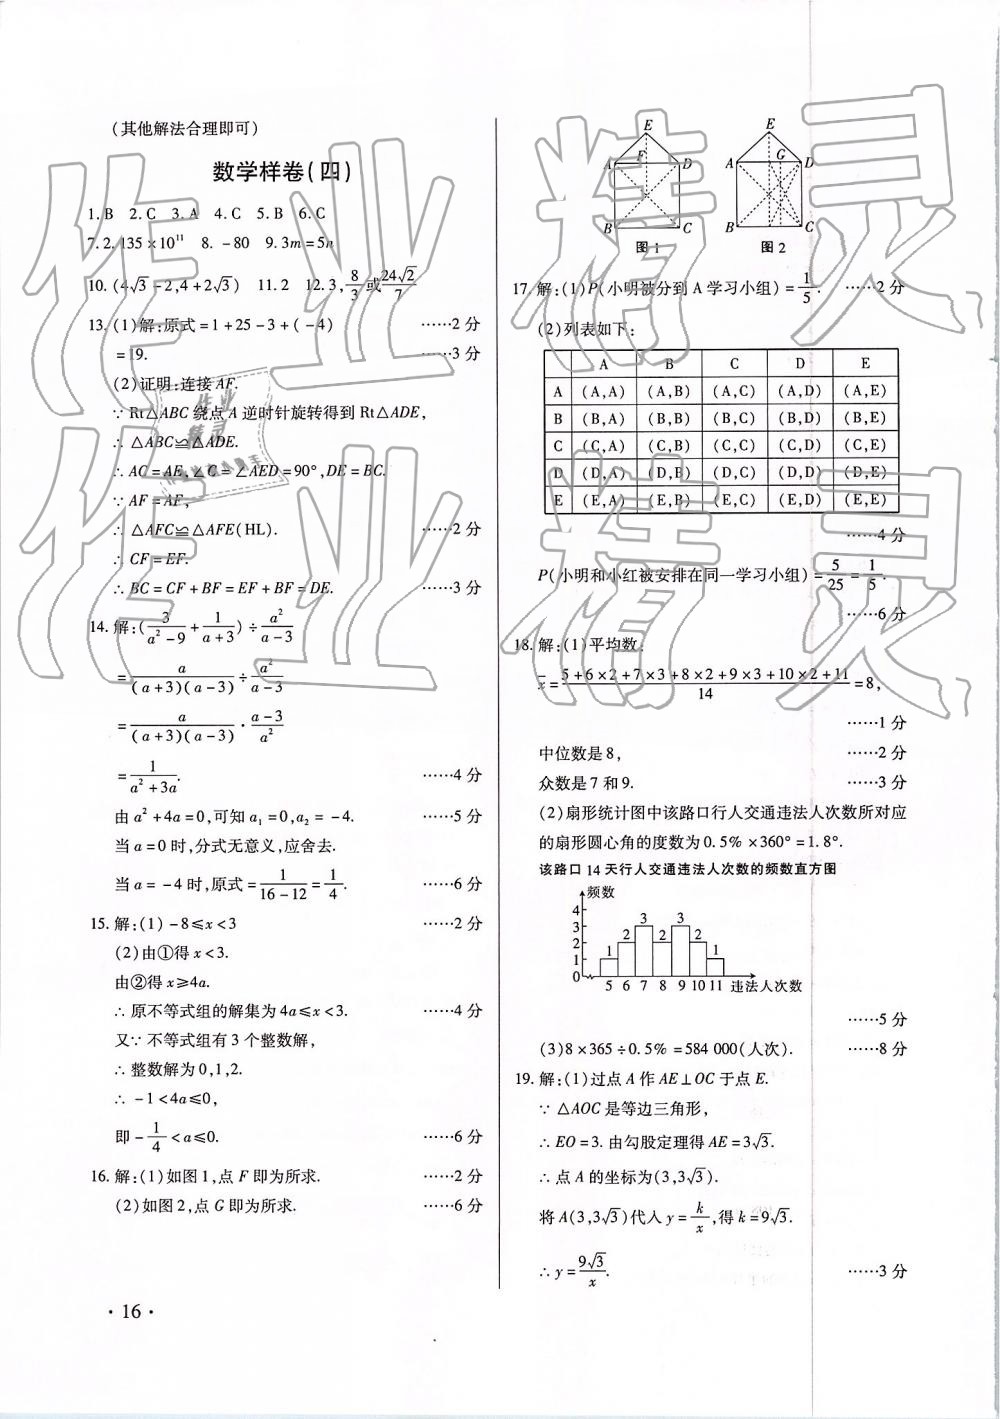 (其他解法合理即可)
数学样卷(四)
1. B 2. C 3. A 4. C 5. B 6. C
7. 2.135×10¹¹ 8. -80 9. 3m=5n
10. (4√3-2,4+2√3) 11. 2 12. 3,8/3或24√2/7
13. (1)解:原式=1+25-3+(-4) ……2分
=19. ……3分
(2)证明:连接AF.
∵ Rt△ABC绕点A逆时针旋转得到Rt△ADE,
∴ △ABC≌△ADE.
∴ AC=AE,∠C=∠AED=90°,DE=BC.
∵ AF=AF,
∴ △AFC≌△AFE(HL). ……2分
∴ CF=EF.
∴ BC=CF+BF=EF+BF=DE. ……3分
14. 解:(3/(a²-9)+1/(a+3))÷a²/(a-3)
=a/((a+3)(a-3))÷a²/(a-3)
=a/((a+3)(a-3))·(a-3)/a²
=1/(a²+3a). ……4分
由a²+4a=0,可知a₁=0,a₂=-4. ……5分
当a=0时,分式无意义,应舍去.
当a=-4时,原式=1/(16-12)=1/4. ……6分
15. 解:(1)-8≤x<3 ……2分
(2)由①得x<3.
由②得x≥4a.
∴ 原不等式组的解集为4a≤x<3. ……4分
又∵ 不等式组有3个整数解,
∴ 整数解为0,1,2.
∴ -1<4a≤0,
即-1/4<a≤0. ……6分
16. 解:(1)如图1,点F即为所求. ……2分
(2)如图2,点G即为所求. ……6分
· 16 ·
E E
A F D A G D
B C B C
图1 图2
17. 解:(1)P(小明被分到A学习小组)=1/5. ……2分
(2)列表如下:
A B C D E
A (A,A) (A,B) (A,C) (A,D) (A,E)
B (B,A) (B,B) (B,C) (B,D) (B,E)
C (C,A) (C,B) (C,C) (C,D) (C,E)
D (D,A) (D,B) (D,C) (D,D) (D,E)
E (E,A) (E,B) (E,C) (E,D) (E,E)
……4分
P(小明和小红被安排在同一学习小组)=5/25=1/5.
……6分
18. 解:(1)平均数:
x̄=(5+6×2+7×3+8×2+9×3+10×2+11)/14=8,
……1分
中位数是8, ……2分
众数是7和9. ……3分
(2)扇形统计图中该路口行人交通违法人次数所对应
的扇形圆心角的度数为0.5%×360°=1.8°.
该路口14天行人交通违法人次数的频数直方图
频数
4
3
2
1
0
1 2 3 2 3 2 1
5 6 7 8 9 10 11 违法人次数
……5分
(3)8×365÷0.5%=584 000(人次). ……8分
19. 解:(1)过点A作AE⊥OC于点E.
∵ △AOC是等边三角形,
∴ EO=3. 由勾股定理得AE=3√3.
∴ 点A的坐标为(3,3√3).
将A(3,3√3)代入y=k/x,得k=9√3.
∴ y=9√3/x. ……3分
作业精灵
作业精灵
作业
精灵